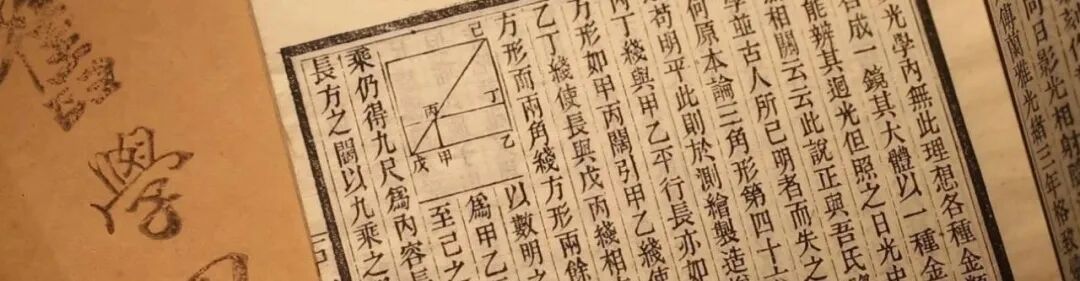 何日影光相射
傅蘭雅光緒三年格致
光學內無此理想各種金類
合成一鏡其大體以一種金
能辨其迴光但照之日光中
相關云云此說正與吾氏
學並古人所已明者而失之
何原本論三角形第四十六
苟明平此則於測繪製造
丙丁綫與甲乙平行長亦如
方形如甲丙闊引甲乙綫使
乙丁綫使長與戊丙綫相
方形而兩角綫方形兩餘
以數明之
爲甲乙
至己之
己
丁
丙
乙
甲
戊
乘仍得九尺爲內容長
長方之闊以九乘之
學